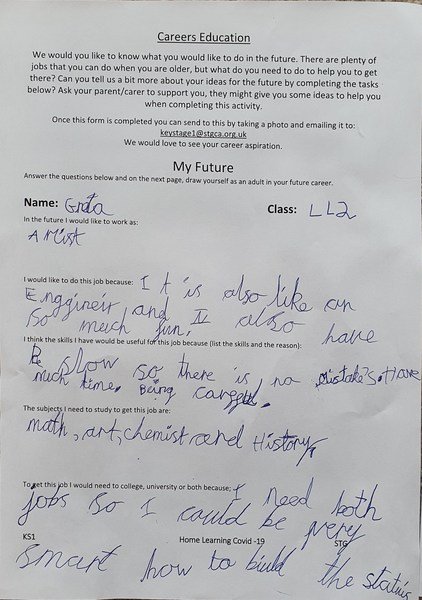 Careers Education
We would you like to know what you would like to do in the future. There are plenty of
jobs that you can do when you are older, but what do you need to do to help you to get
there? Can you tell us a bit more about your ideas for the future by completing the tasks
below? Ask your parent/carer to support you, they might give you some ideas to help you
when completing this activity.
Once this form is completed you can send to this by taking a photo and emailing it to:
keystage1@stgca.org.uk
We would love to see your career aspiration.
My Future
Answer the questions below and on the next page, draw yourself as an adult in your future career.
Name: Greta Class: LL2
In the future I would like to work as:
Artist
I would like to do this job because: It is also like an
Enggineir and
so much fun. also have
I think the skills I have would be useful for this job because (list the skills and the reason):
Be slow so there is no mistake's. Have
much time. Being
The subjects I need to study to get this job are:
math, art, chemist and History.
To get this job I would need to college, university or both because; I need both
jobs so I could be very
KS1 Home Learning Covid -19 STG
smart how to the